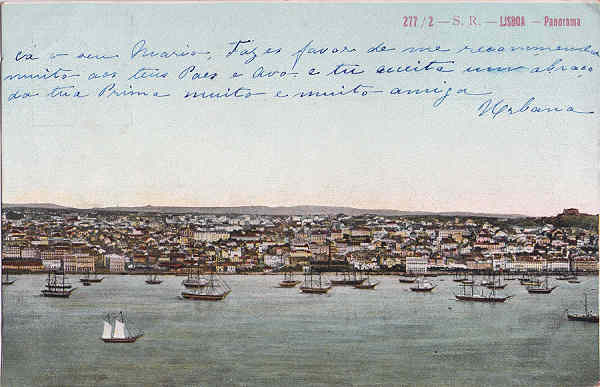 277/2 — S. R. — LISBOA — Panorama
cá o seu Mario, Fazes favor de me recommendar
muito aos teus Paes e Avo. e tu aceita um abraço
da tua Prima muito e muito amiga
Urbana